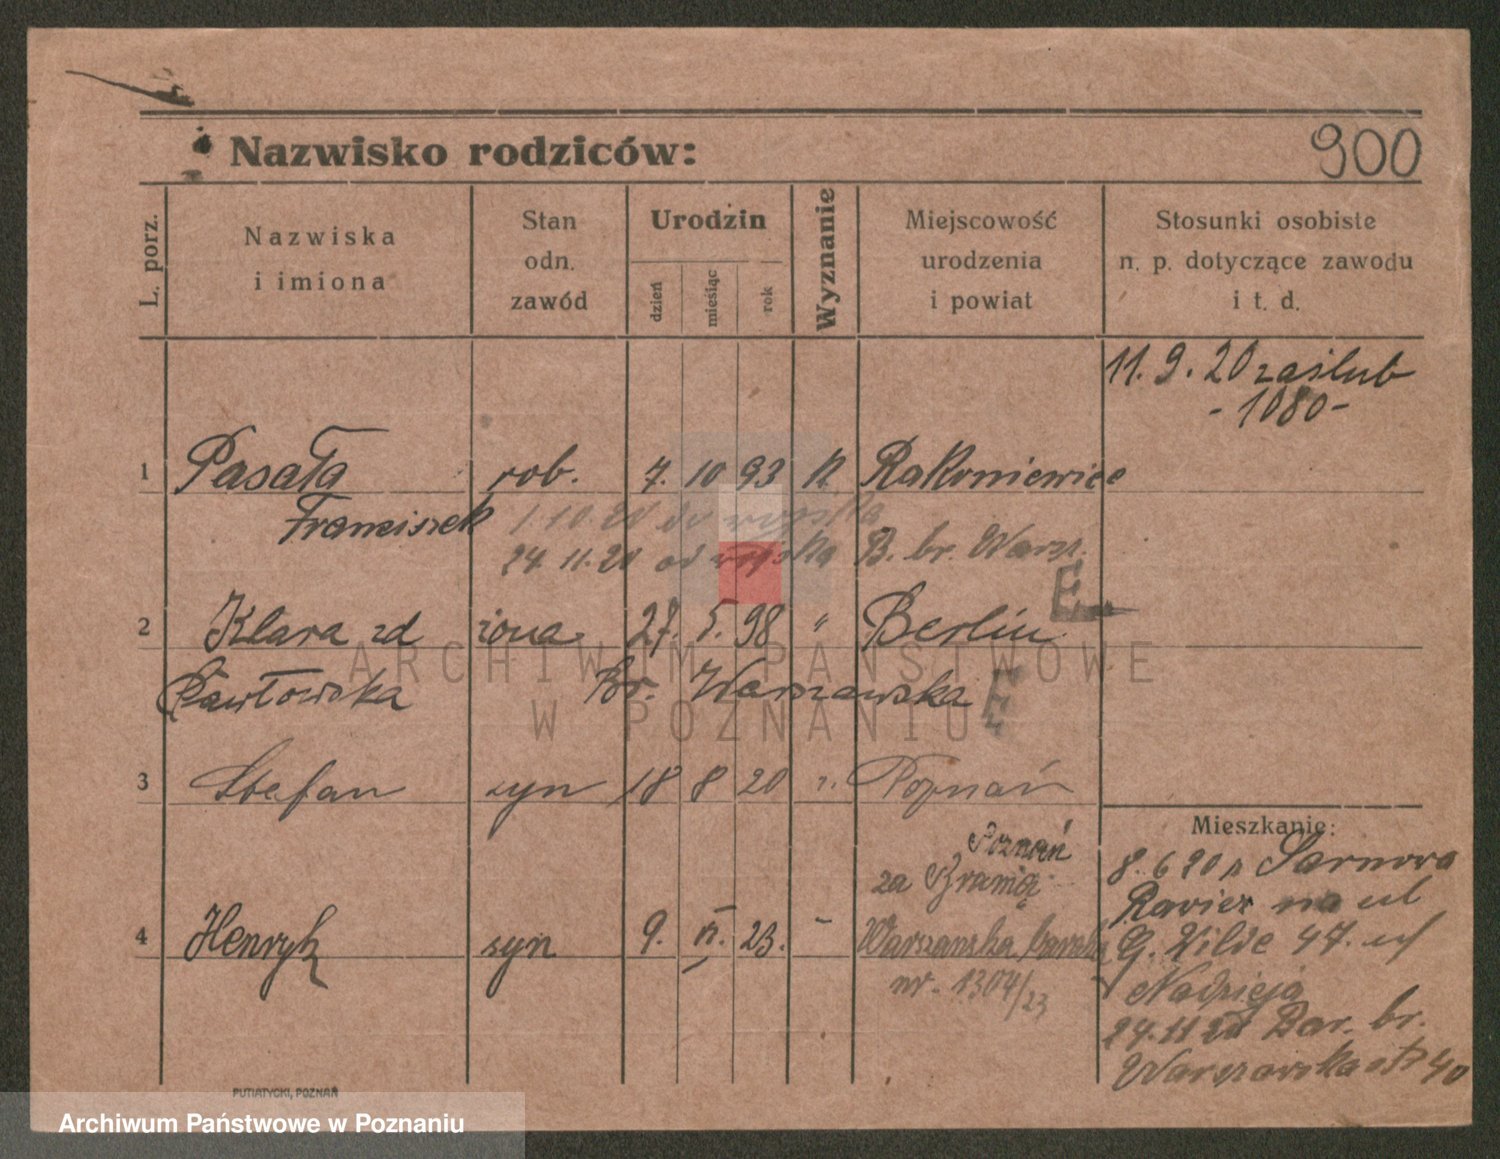 Nazwisko rodziców:
900
L. porz.
Nazwiska
i imiona
Stan
odn.
zawód
Urodzin
dzień
miesiąc
rok
Wyznanie
Miejscowość
urodzenia
i powiat
Stosunki osobiste
n. p. dotyczące zawodu
i t. d.
11. 9. 20 zaślub
- 1080 -
1 Pasała rob. 7. 10 93 K Rakoniewice
Franciszek 1 10. 20 do wojska
24. 11. 20 od wojska B. br. Warsz.
E
2 Klara zd żona 27. 5. 98 " Berlin
Pawłowska Br. Warszawska E
3 Stefan syn 18 8 20 Poznań
Mieszkanie:
Poznań
za Bramą
4 Henryk syn 9. VI. 23. - Warszawska
nr. 1304/23
8. 6 20 z Sarnowa
Rawicz na ul
G. Wilde 47.
Nadzieja
24. 11 20 Bar. br.
Warszawska 40
PUTIATYCKI, POZNAŃ
ARCHIWUM PAŃSTWOWE
W POZNANIU
Archiwum Państwowe w Poznaniu